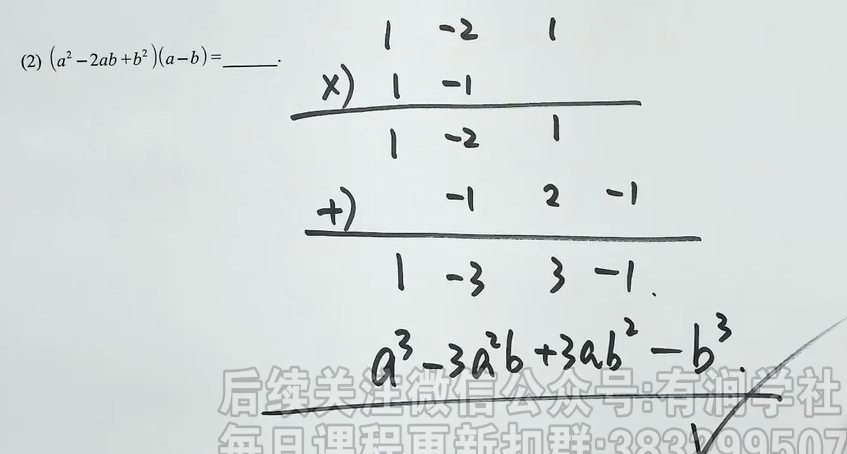 (2) (a² − 2ab + b²)(a − b) = _____.
1 -2 1
×) 1 -1
1 -2 1
+) -1 2 -1
1 -3 3 -1.
a³ - 3a²b + 3ab² - b³.
后续关注微信公众号:有润学社
每日课程更新扣群:383299507